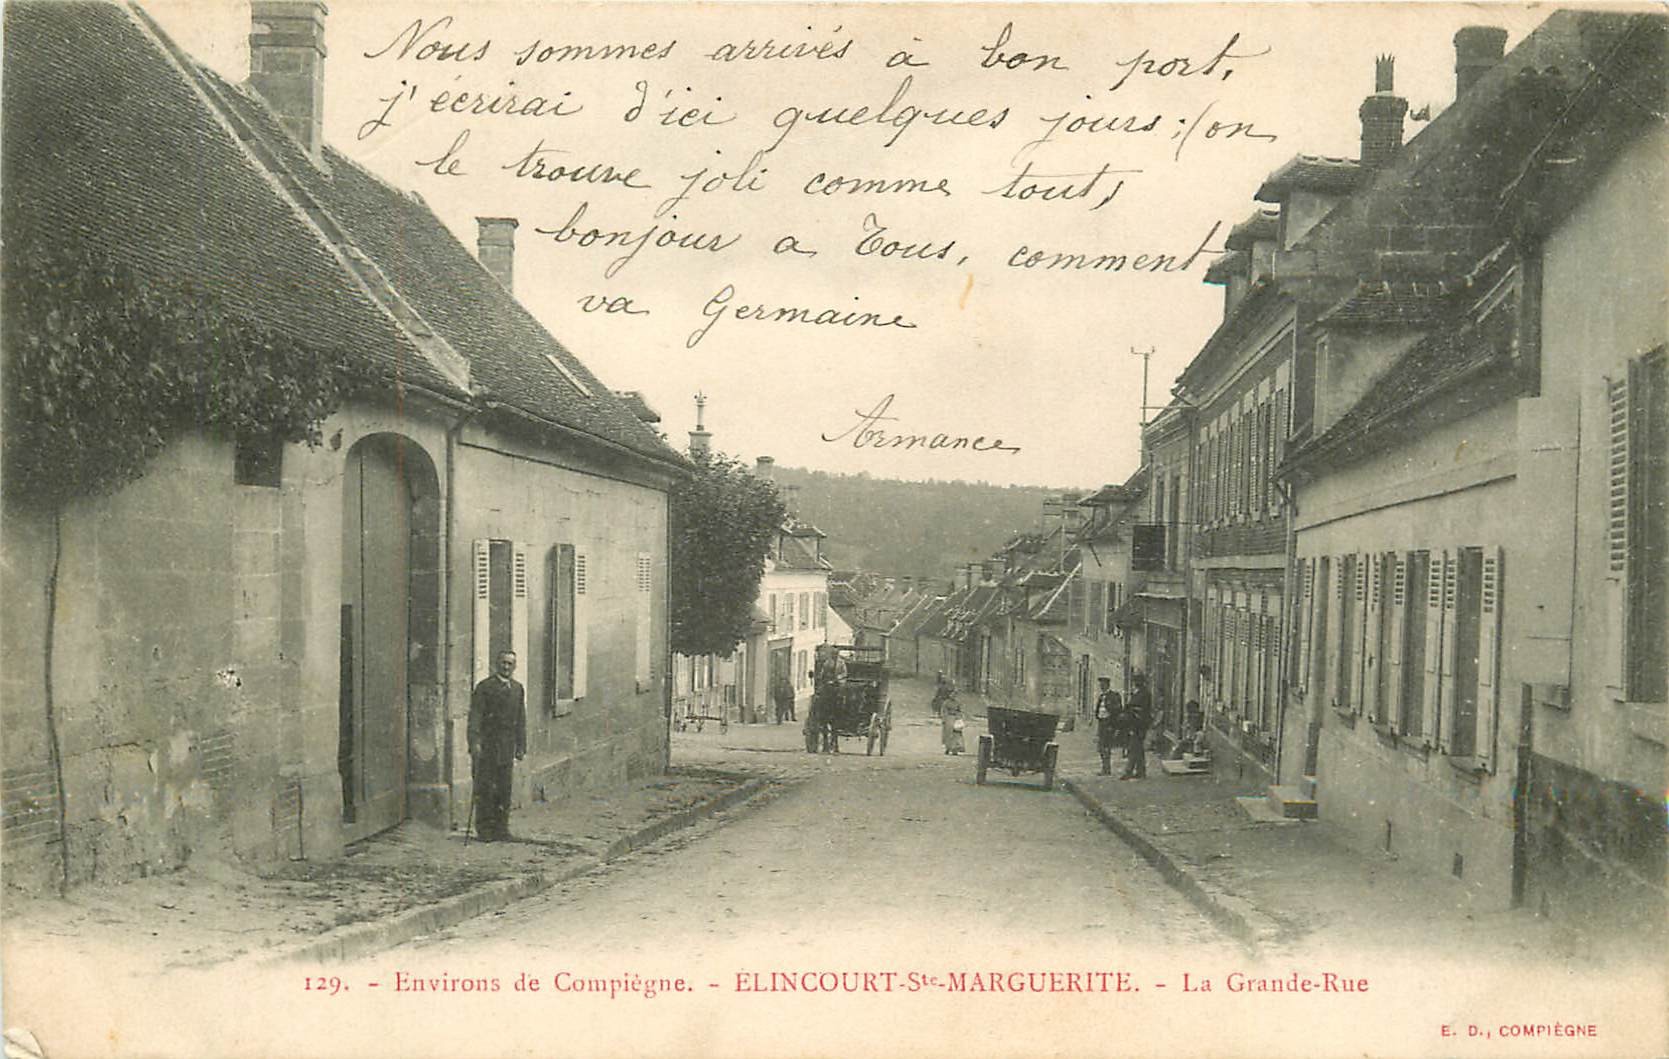 Nous sommes arrivés à bon port,
j'écrirai d'ici quelques jours ; (on
le trouve joli comme tout)
bonjour a Tous, comment
va Germaine
Armance
129. - Environs de Compiègne. - ÉLINCOURT-Ste-MARGUERITE. - La Grande-Rue
E. D., COMPIÈGNE